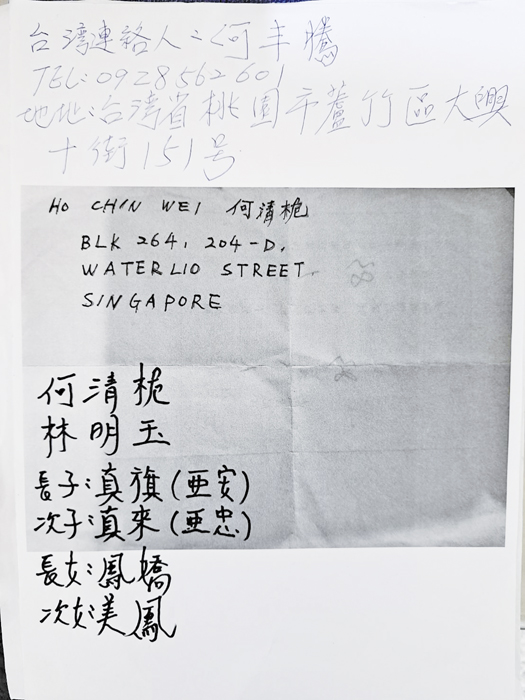 台湾連絡人:何丰騰
TEL:0928562601
地址:台湾省桃園市蘆竹區大興
十街151号
HO CHIN WEI 何清桅
BLK 264, 204-D,
WATERLIO STREET
SINGAPORE
何清桅
林明玉
長子:真旗(亜安)
次子:真來(亜忠)
長女:鳳嬌
次女:美鳳